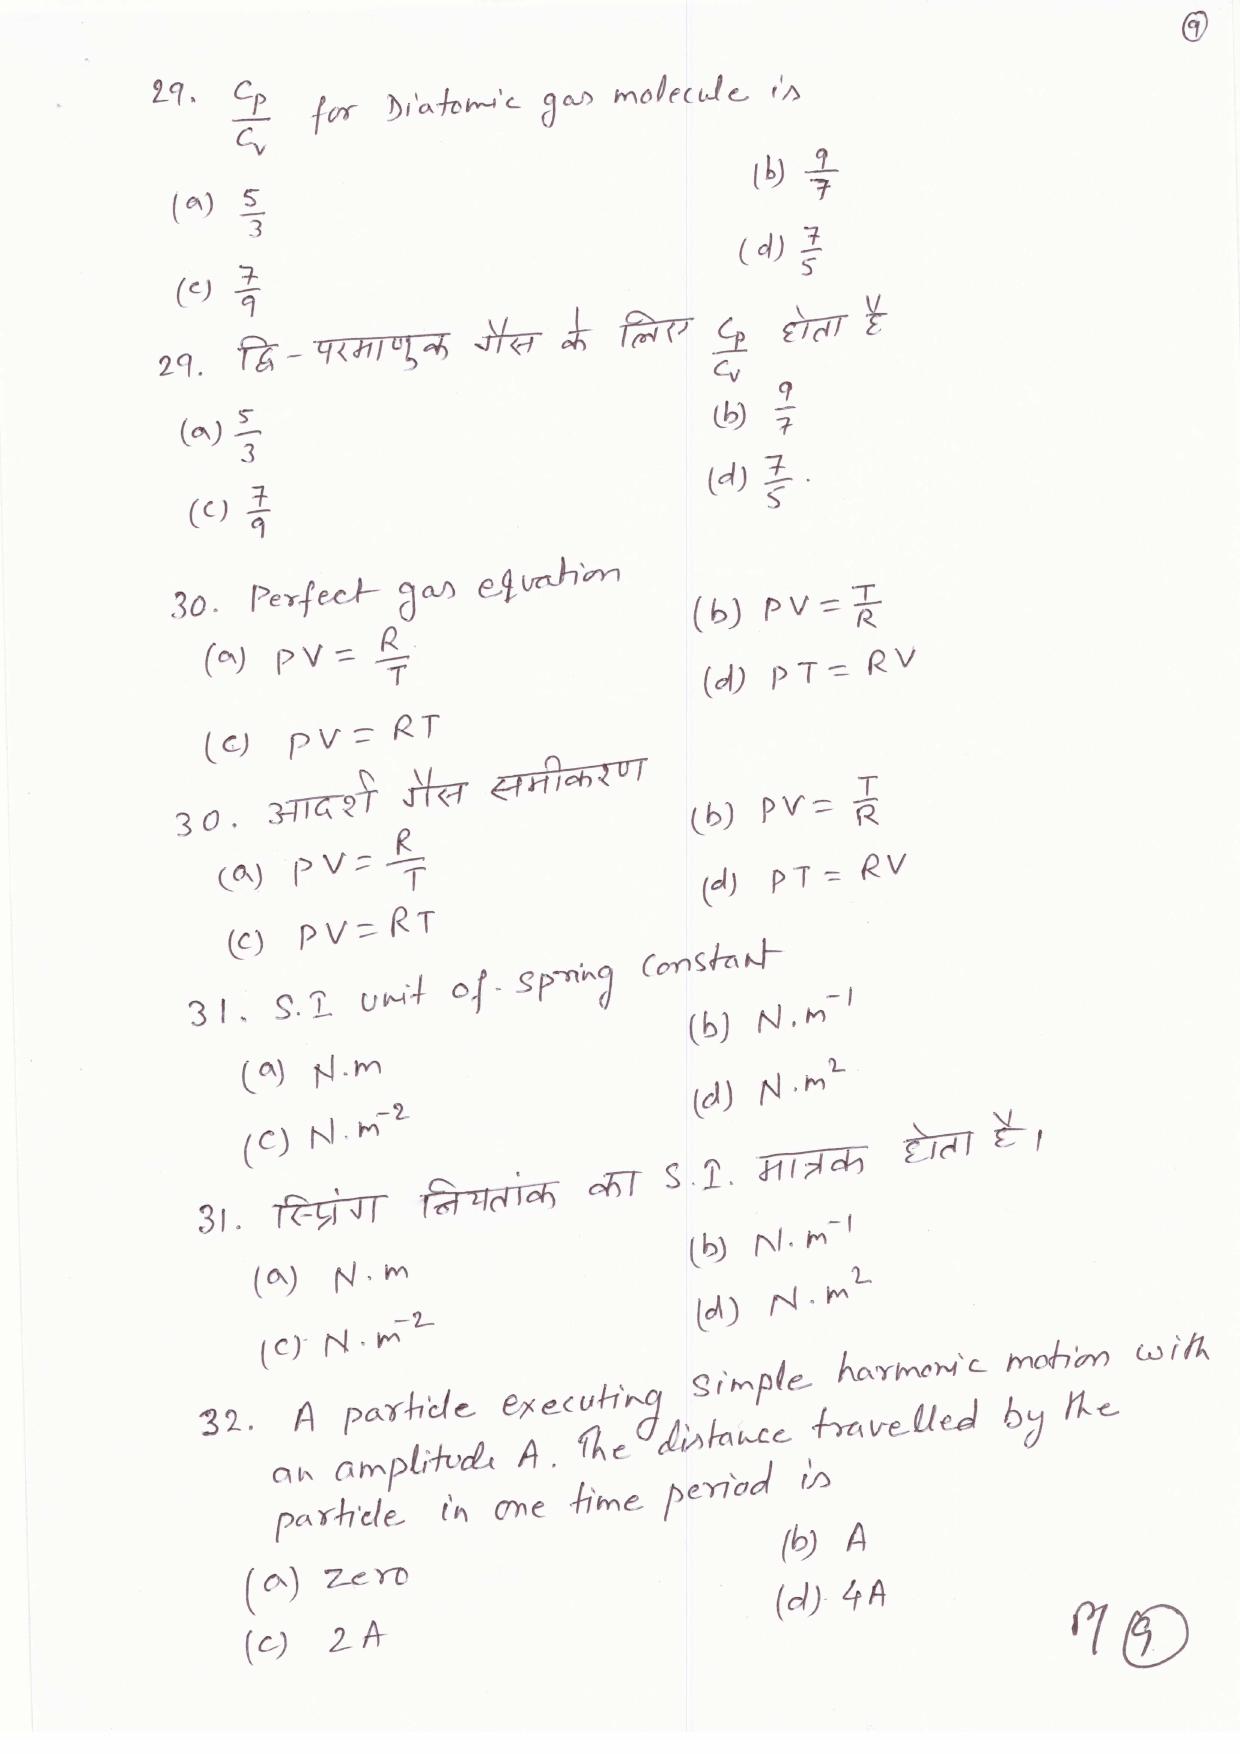 9
29. Cp/Cv for Diatomic gas molecule is
(a) 5/3 (b) 9/7
(c) 7/9 (d) 7/5
29. द्वि-परमाणुक गैस के लिए Cp/Cv होता है
(a) 5/3 (b) 9/7
(c) 7/9 (d) 7/5.
30. Perfect gas equation
(a) PV = R/T (b) PV = T/R
(c) PV = RT (d) PT = RV
30. आदर्श गैस समीकरण
(a) PV = R/T (b) PV = T/R
(c) PV = RT (d) PT = RV
31. S.I unit of spring constant
(a) N.m (b) N.m⁻¹
(c) N.m⁻² (d) N.m²
31. स्प्रिंग नियतांक का S.I. मात्रक होता है।
(a) N.m (b) N.m⁻¹
(c) N.m⁻² (d) N.m²
32. A particle executing simple harmonic motion with
an amplitude A. The distance travelled by the
particle in one time period is
(a) zero (b) A
(c) 2A (d) 4A
9